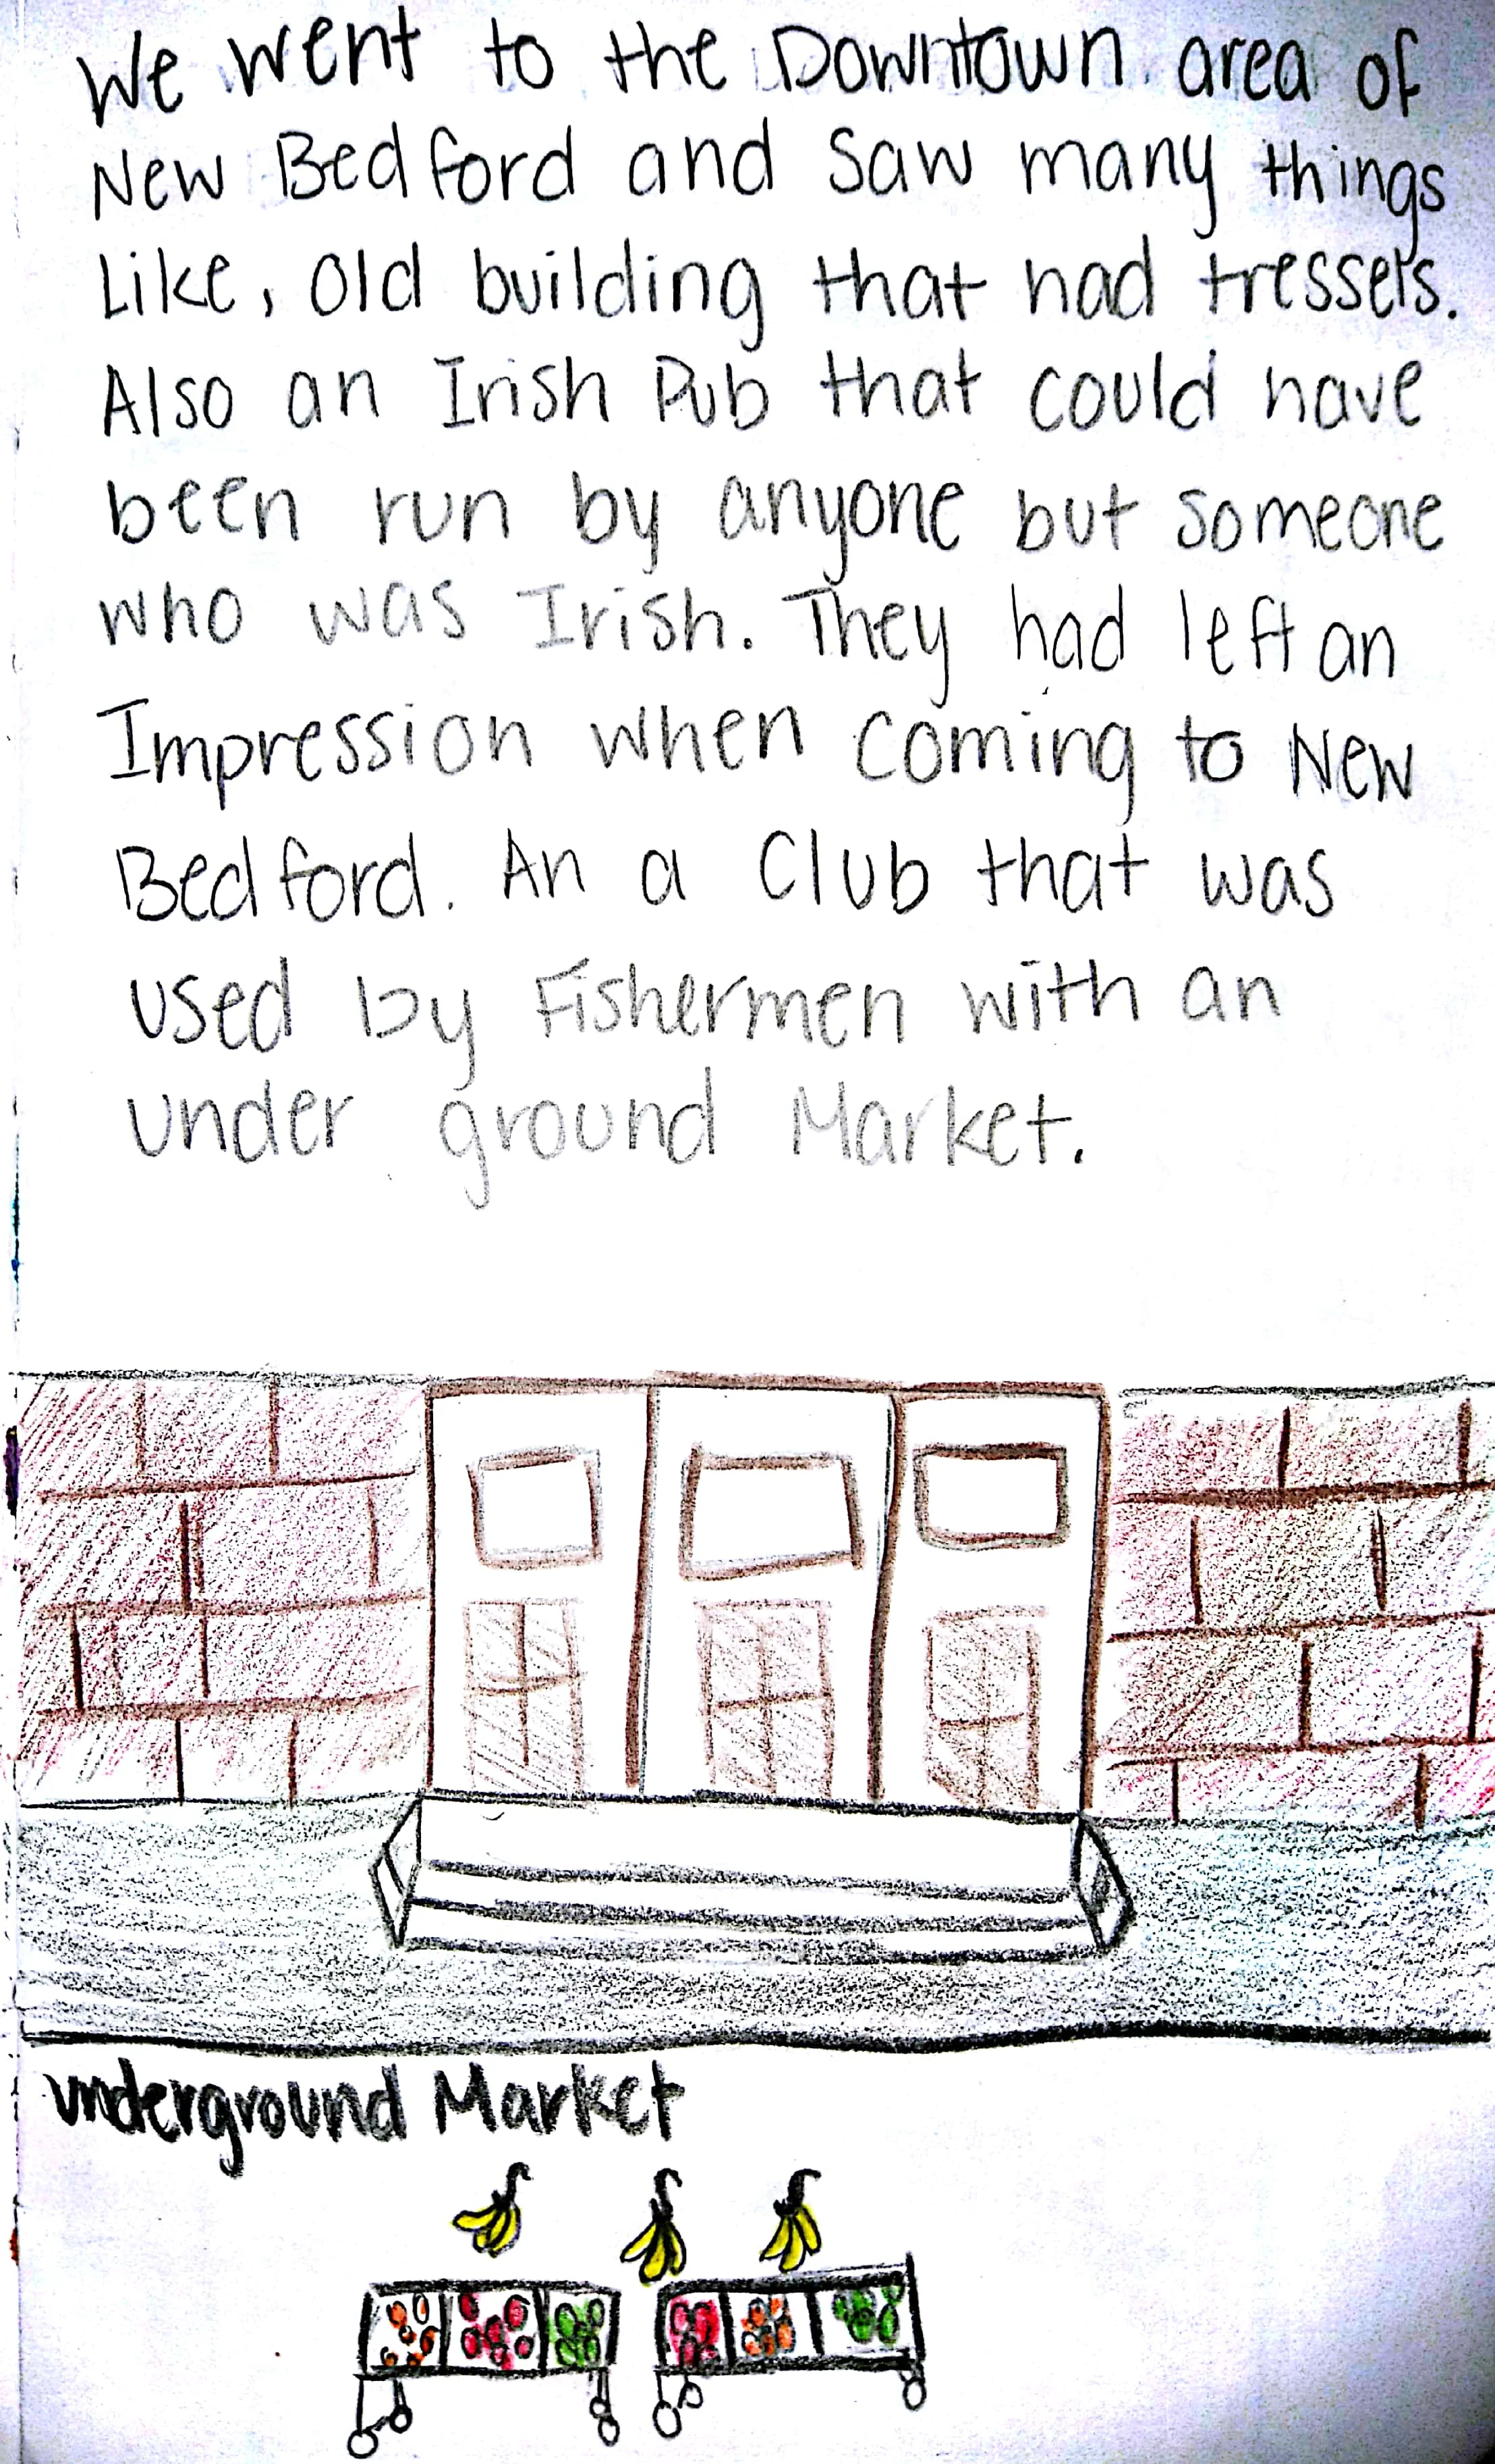 We went to the Downtown area of
New Bedford and saw many things
Like, old building that had tressels.
Also an Irish Pub that could have
been run by anyone but someone
who was Irish. They had left an
Impression when coming to New
Bedford. An a Club that was
used by Fishermen with an
under ground Market.
underground Market